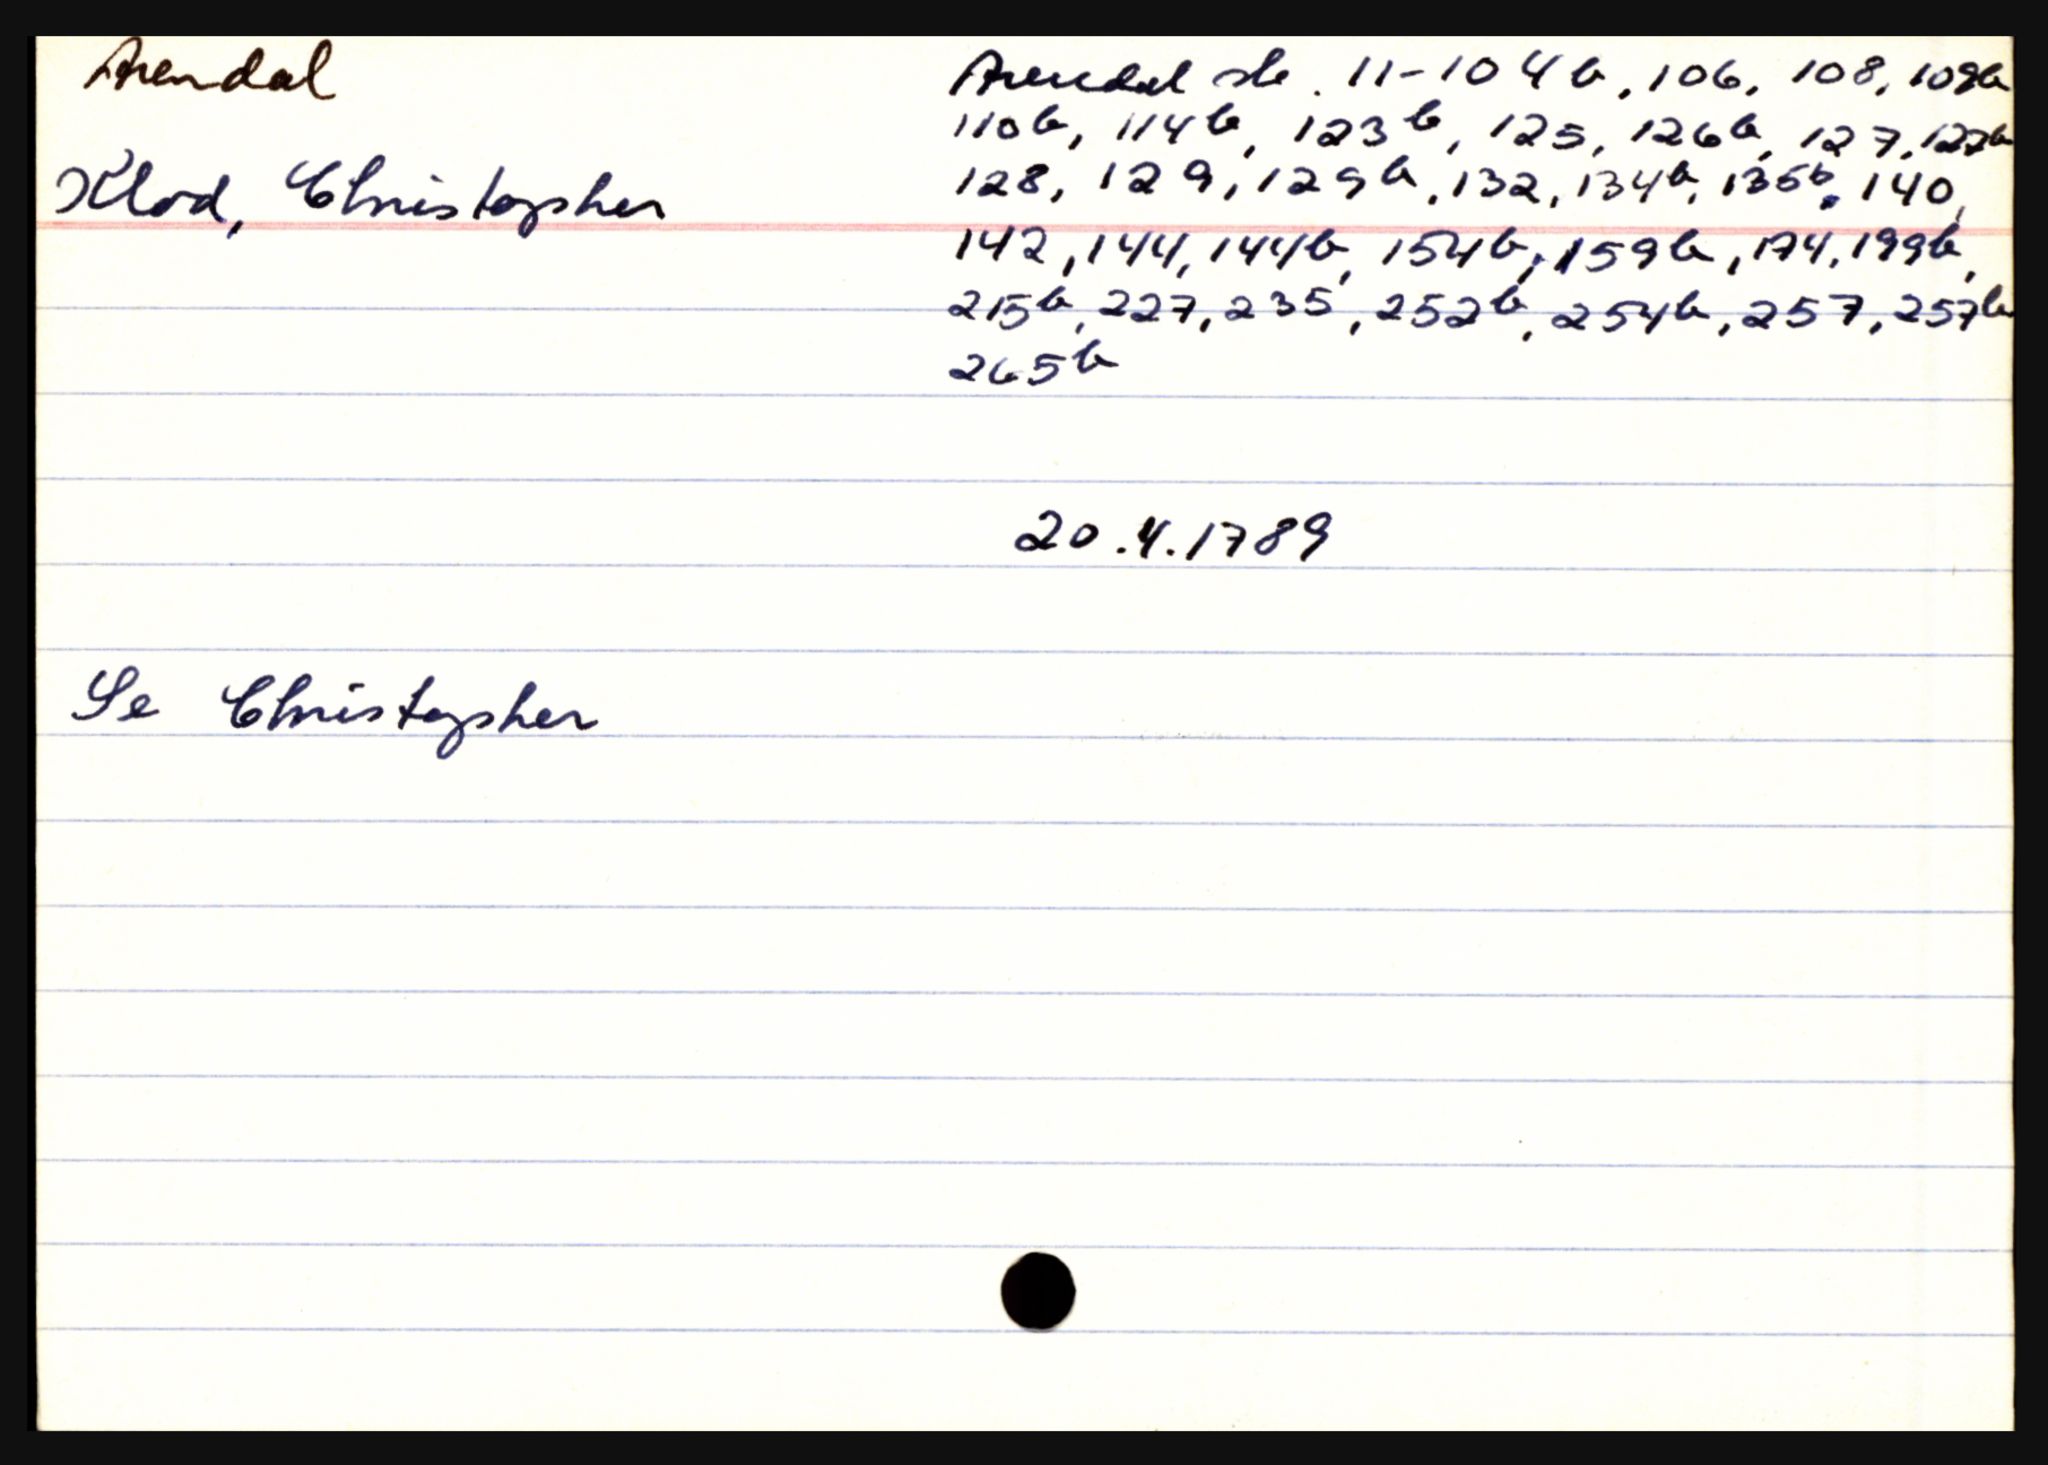 Arendal
Arendal sk. 11-104b, 106, 108, 109b
110b, 114b, 123b, 125, 126b, 127, 127b
Klod, Christopher
128, 129, 129b, 132, 134b, 135b, 140,
142, 144, 144b, 154b, 159b, 174, 199b,
215b, 227, 235, 252b, 254b, 257, 257b
265b
20.4.1789
Se Christopher